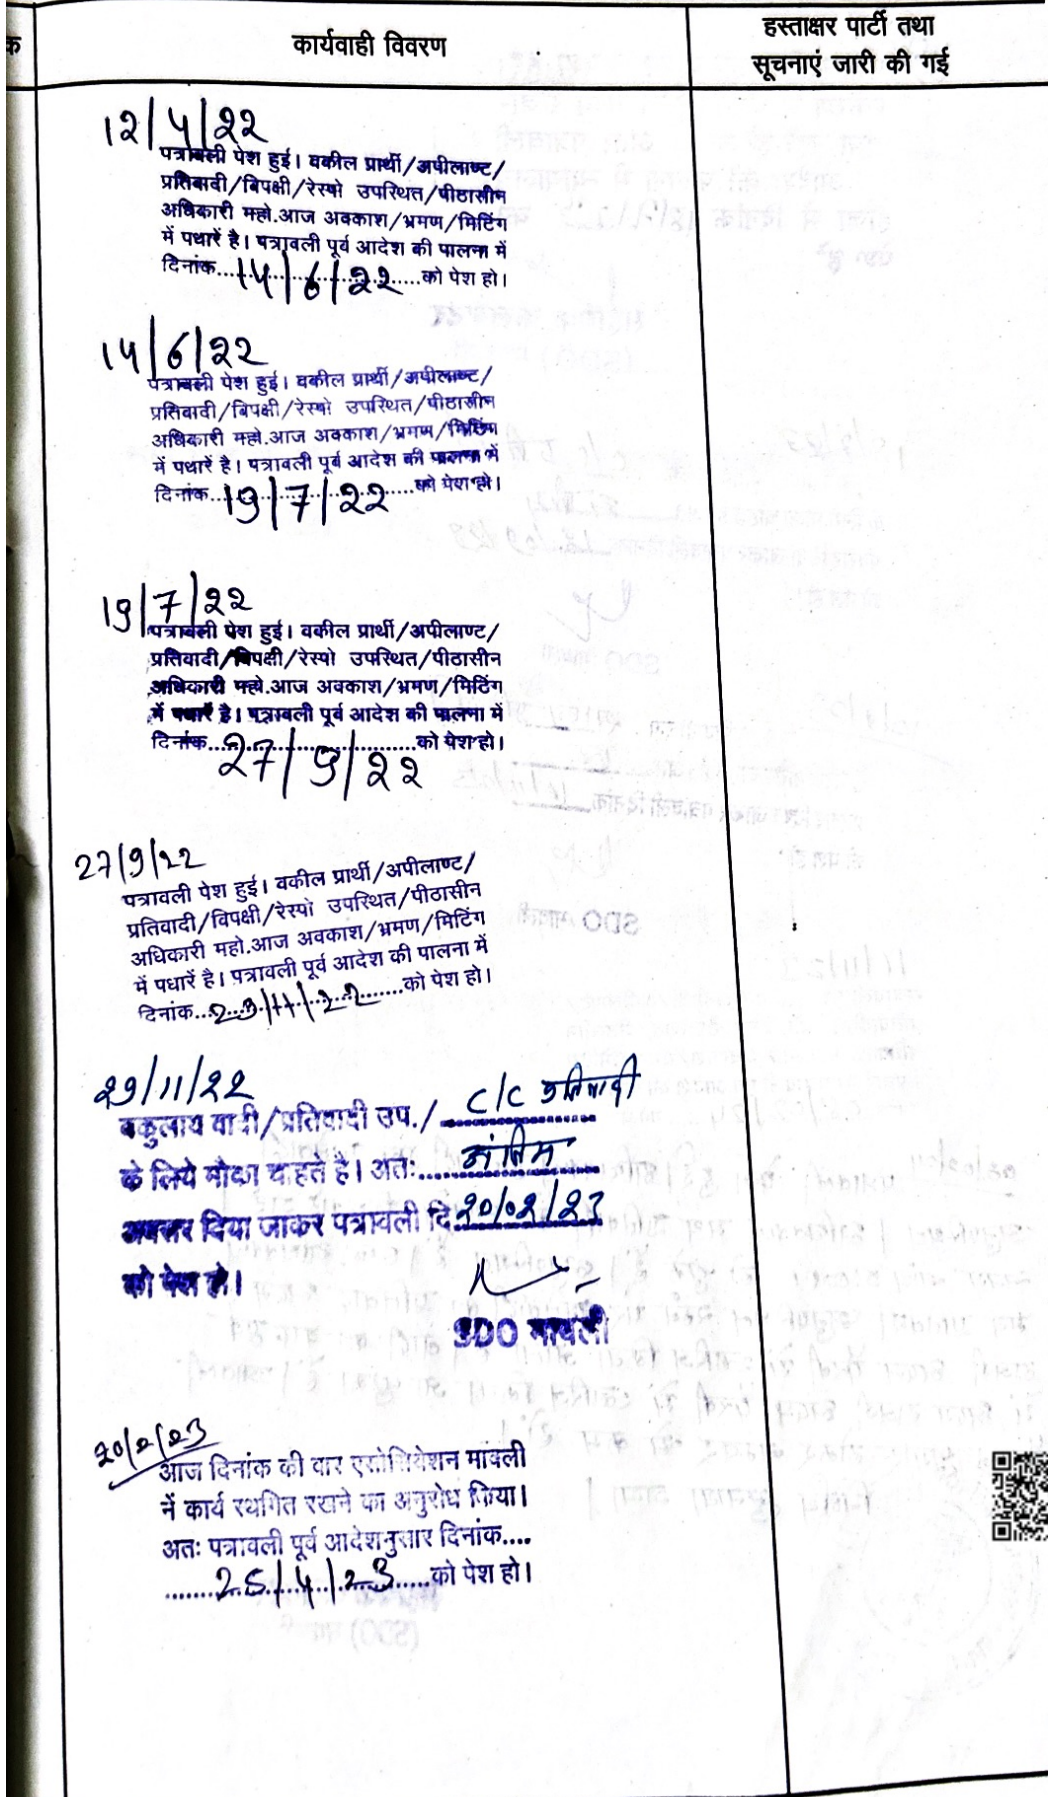 क
कार्यवाही विवरण
हस्ताक्षर पार्टी तथा
सूचनाएं जारी की गई
12/4/22
पत्रावली पेश हुई। वकील प्रार्थी/अपीलाण्ट/
प्रतिवादी/विपक्षी/रेस्पो उपस्थित/पीठासीन
अधिकारी महो.आज अवकाश/भ्रमण/मिटिंग
में पधारें है। पत्रावली पूर्व आदेश की पालना में
दिनांक....14/6/22....को पेश हो।
14/6/22
पत्रावली पेश हुई। वकील प्रार्थी/अपीलाण्ट/
प्रतिवादी/विपक्षी/रेस्पो उपस्थित/पीठासीन
अधिकारी महो.आज अवकाश/भ्रमण/मिटिंग
में पधारें है। पत्रावली पूर्व आदेश की पालना में
दिनांक....19/7/22....को पेश हो।
19/7/22
पत्रावली पेश हुई। वकील प्रार्थी/अपीलाण्ट/
प्रतिवादी/विपक्षी/रेस्पो उपस्थित/पीठासीन
अधिकारी महो.आज अवकाश/भ्रमण/मिटिंग
में पधारें है। पत्रावली पूर्व आदेश की पालना में
दिनांक....27/9/22....को पेश हो।
27/9/22
पत्रावली पेश हुई। वकील प्रार्थी/अपीलाण्ट/
प्रतिवादी/विपक्षी/रेस्पो उपस्थित/पीठासीन
अधिकारी महो.आज अवकाश/भ्रमण/मिटिंग
में पधारें है। पत्रावली पूर्व आदेश की पालना में
दिनांक....29/11/22....को पेश हो।
29/11/22
वकुलाय वादी/प्रतिवादी उप./ C/C प्रतिवादी
के लिये मौका चाहते है। अतः....अंतिम....
अवसर दिया जाकर पत्रावली दि.20/02/23
को पेश हो।
SDO मावली
20/2/23
आज दिनांक की वार एसोशियेशन मावली
नें कार्य स्थगित रखने का अनुरोध किया।
अतः पत्रावली पूर्व आदेशनुसार दिनांक....
........25/4/23......को पेश हो।